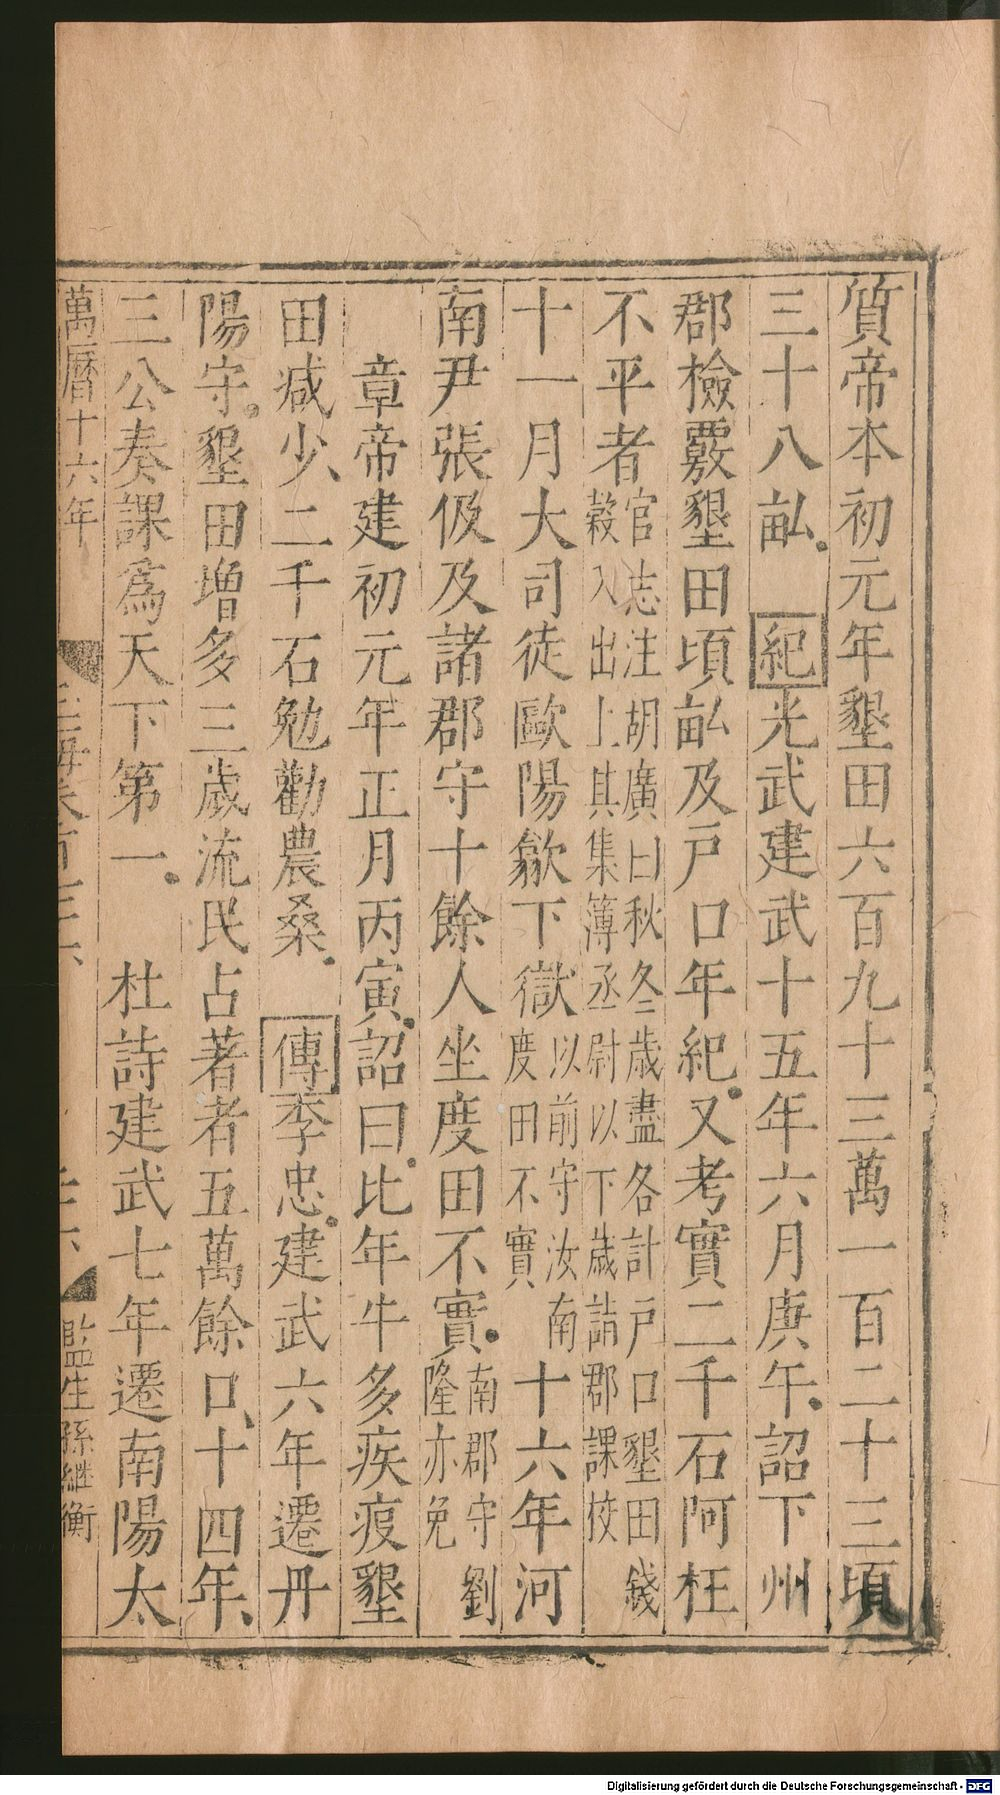 質帝本初元年墾田六百九十三萬一百二十三頃
三十八畆紀光武建武十五年六月庚午詔下州
郡檢覈墾田頃畆及戸口年紀又考實二千石阿枉
不平者官志注胡廣曰秋冬歳盡各計戸口墾田錢
穀入出上其集簿丞尉以下歳詣郡課校
十一月大司徒歐陽歙下獄以前守汝南
度田不實十六年河
南尹張伋及諸郡守十餘人坐度田不實南郡守劉
隆亦免
章帝建初元年正月丙寅詔曰比年牛多疾疫墾
田减少二千石勉勸農桑傳李忠建武六年遷丹
陽守墾田増多三歳流民占著者五萬餘口十四年
三公奏課爲天下第一杜詩建武七年遷南陽太
萬曆十六年
監生孫継衡
Digitalisierung gefördert durch die Deutsche Forschungsgemeinschaft - DFG